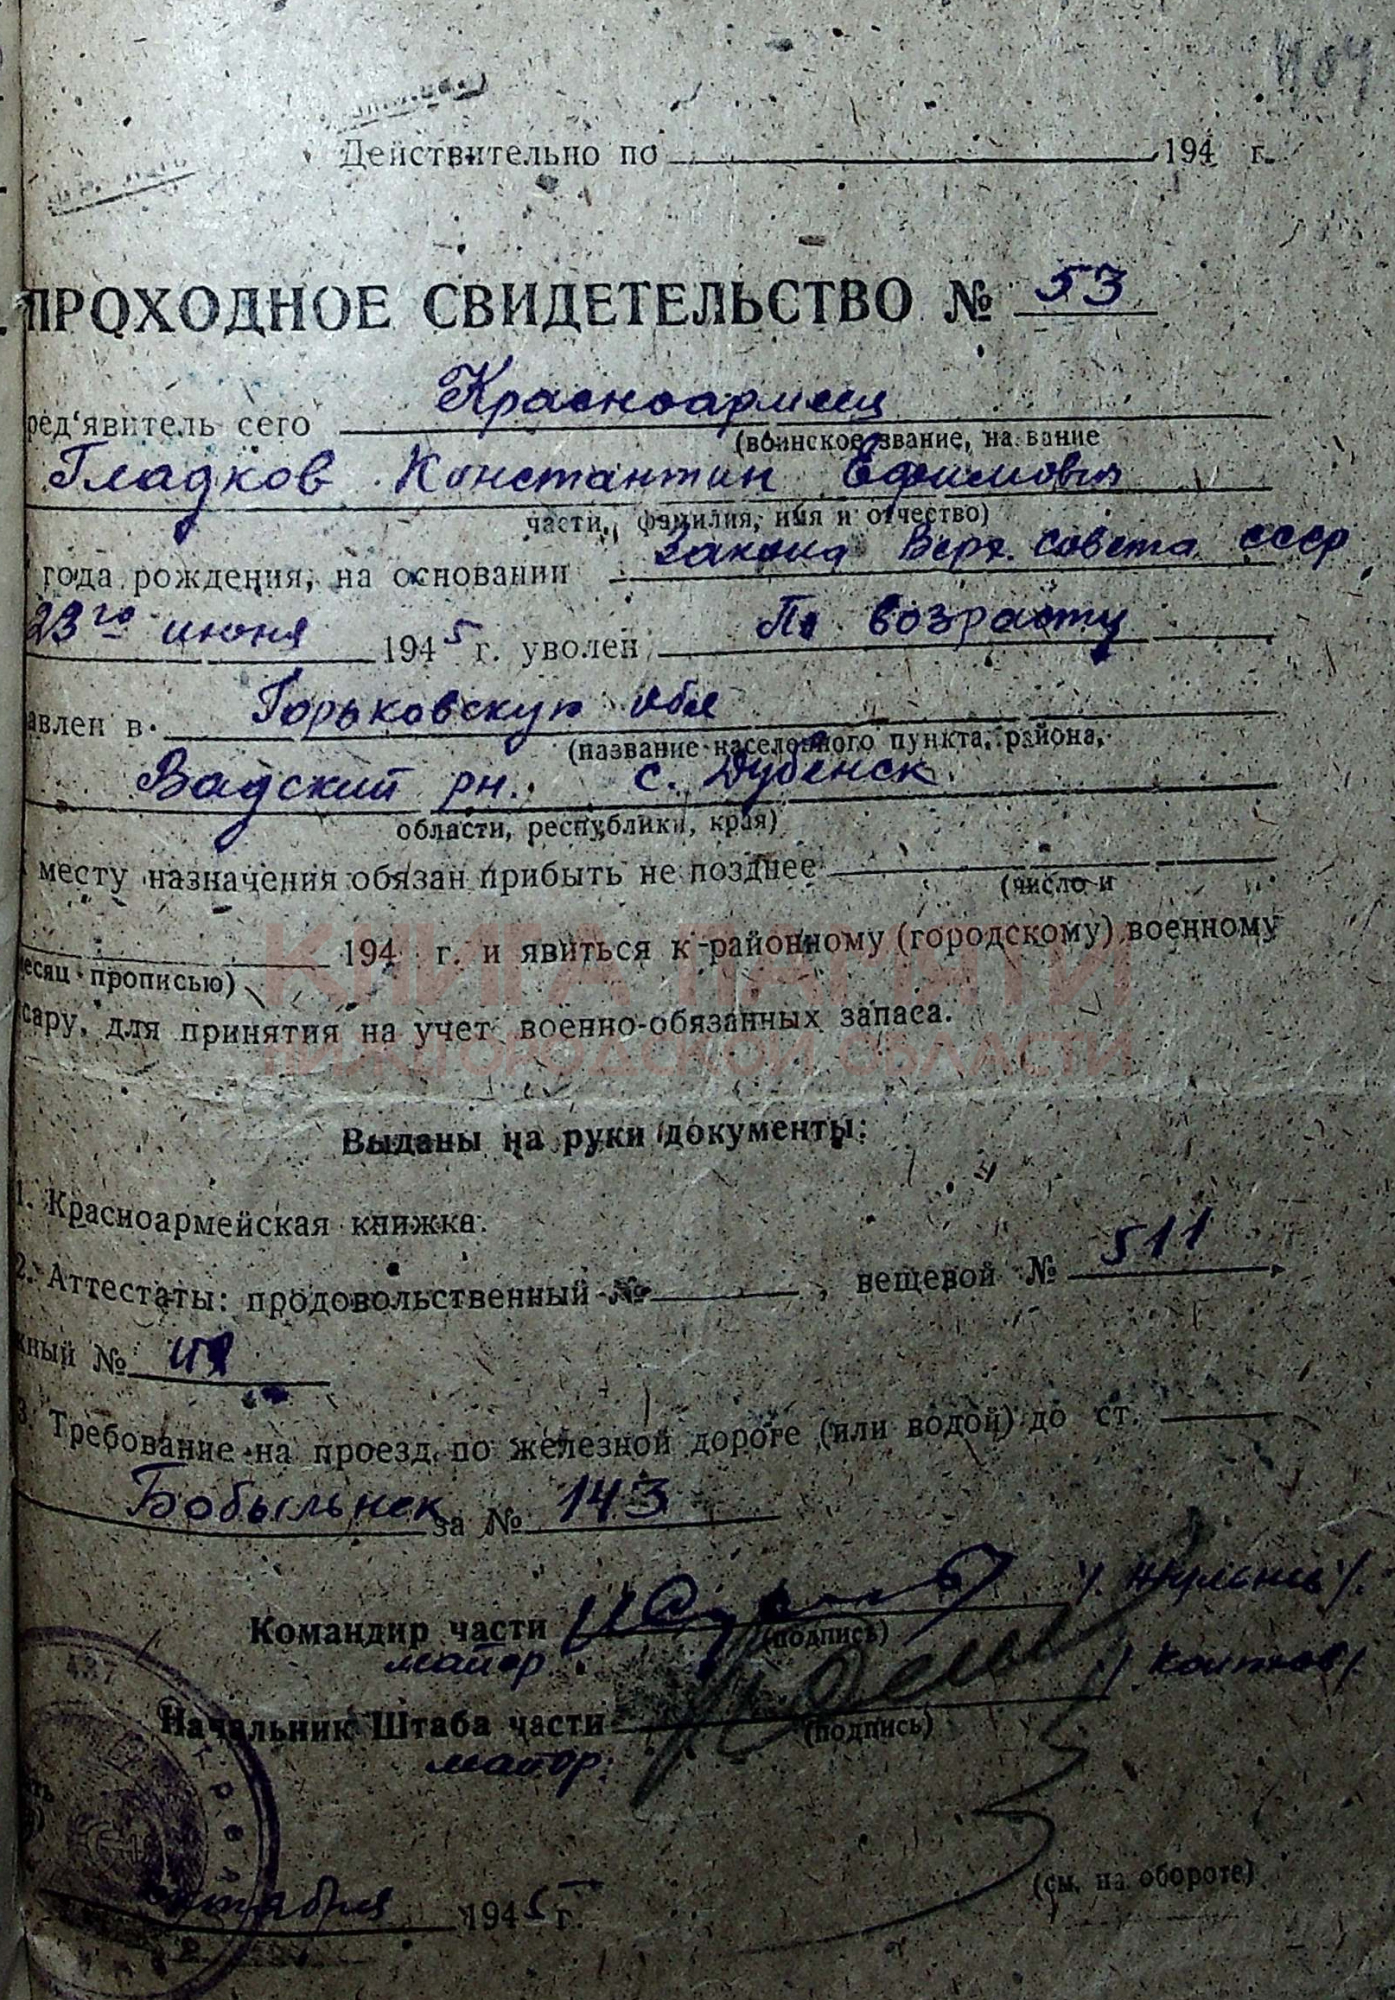 Действительно по 194 г.
ПРОХОДНОЕ СВИДЕТЕЛЬСТВО № 53
ред‘явитель сего Красноармеец
(воинское звание, название
Гладков Константин Ефимович
части, фамилия, имя и отчество)
года рождения, на основании Закона Верх. Совета СССР
23го июня 1945 г. уволен По возрасту
авлен в Горьковскую обл
(название населенного пункта, района,
Вадский рн. с. Дубенск
области, республики, края)
месту назначения обязан прибыть не позднее
(число и
194 г. и явиться к районному (городскому) военному
есяц прописью)
сару, для принятия на учет военно-обязанных запаса.
КНИГА ПАМЯТИ
НИЖЕГОРОДСКОЙ ОБЛАСТИ
Выданы на руки документы:
1. Красноармейская книжка.
2. Аттестаты: продовольственный № , вещевой № 511
жный №
3. Требование на проезд по железной дороге (или водой) до ст.
Бобыльнек за № 143
Командир части
(подпись)
майор
Начальник Штаба части
(подпись)
майор
437
октября 1945 г.
(см. на обороте)